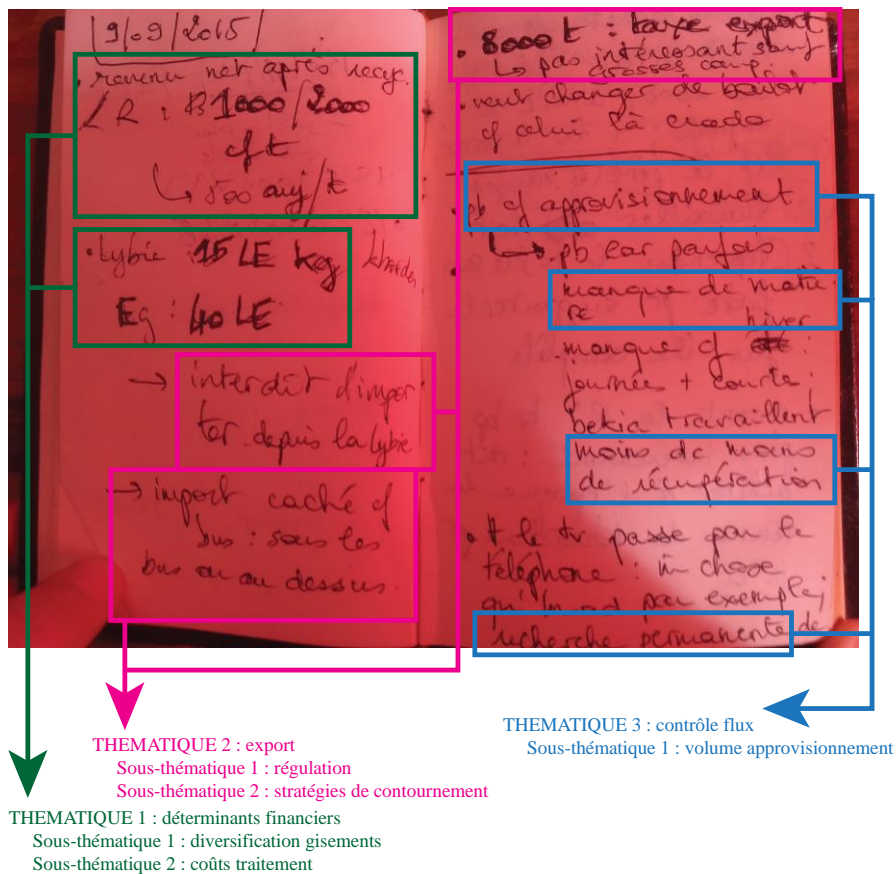 19/09/2015
. revenu net après recyc.
LR : B 1000/2000
cft
↳ 500 auj/t
. Lybie 15 LE kg
Eg : 40 LE
→ interdit d'impor
ter depuis la Lybie
→ import caché cf
bus : sous les
bus ou au dessus.
. 8000 t : taxe export
↳ pas intéressant sauf
grosses
. veut changer de boulot
cf celui là crado
. pb cf approvisionnement
↳ . pb car parfois
manque de matiè
re hiver
. manque cf été :
journées + courte :
bekia travaillent
moins dc moins
de récupération
. # le tv passe par le
téléphone : m chose
par exemple,
recherche permanente de
THEMATIQUE 2 : export
Sous-thématique 1 : régulation
Sous-thématique 2 : stratégies de contournement
THEMATIQUE 3 : contrôle flux
Sous-thématique 1 : volume approvisionnement
THEMATIQUE 1 : déterminants financiers
Sous-thématique 1 : diversification gisements
Sous-thématique 2 : coûts traitement